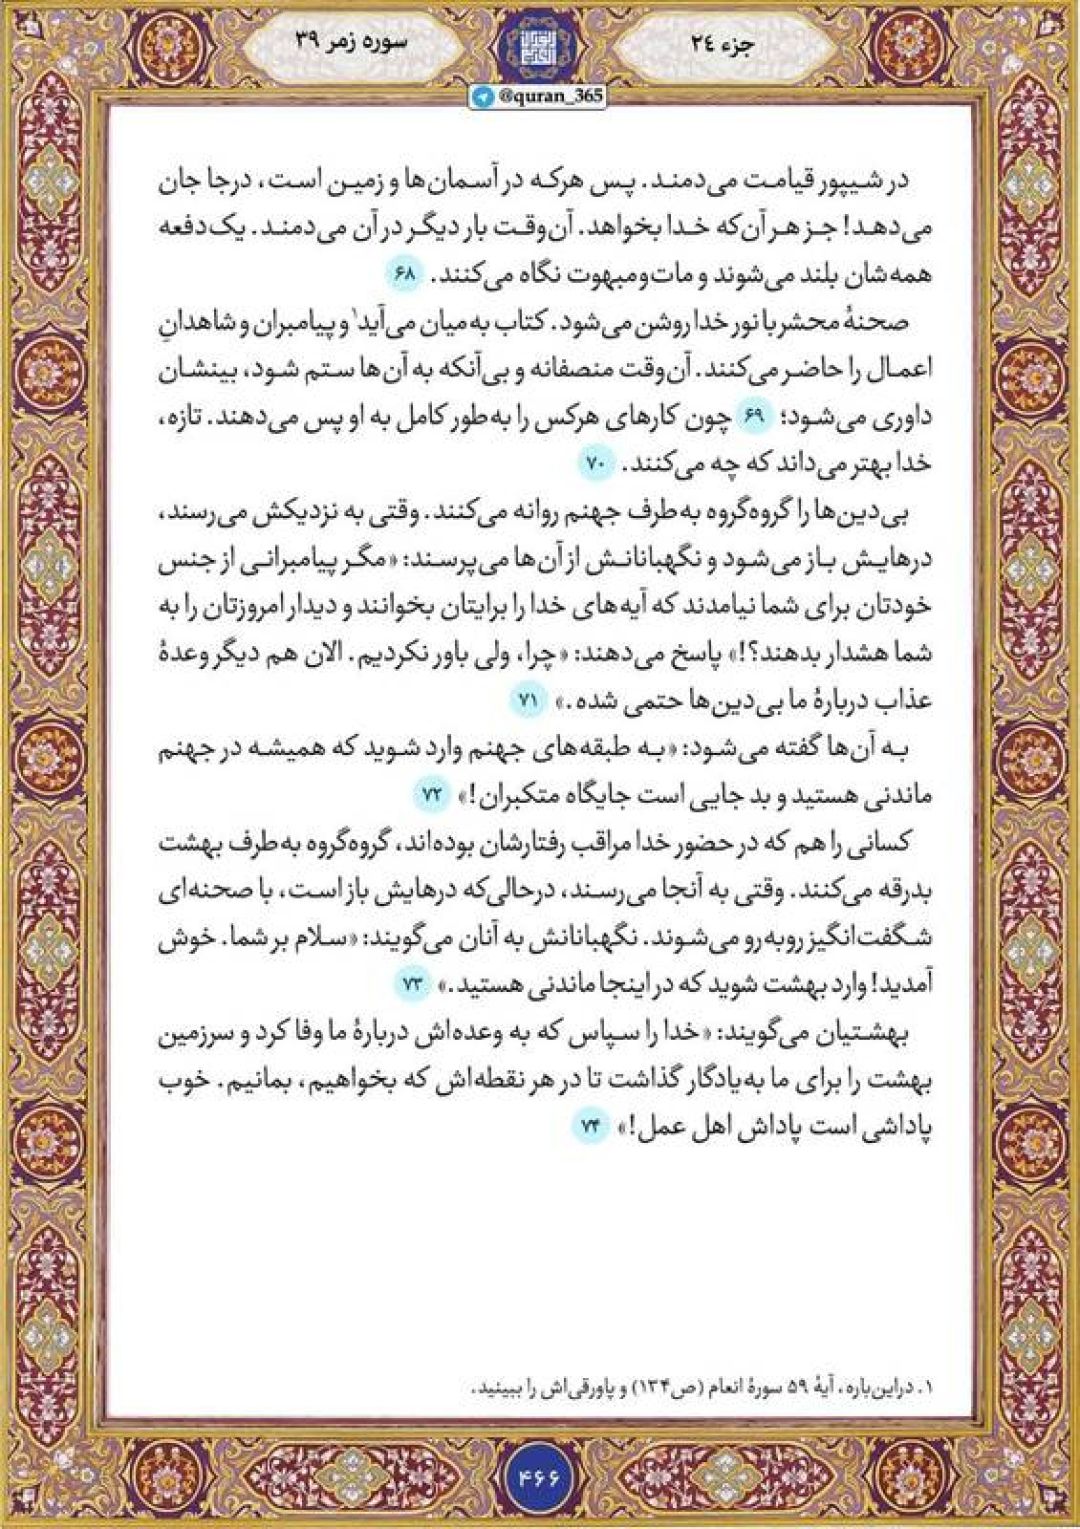 جزء ۲۴
سوره زمر ۳۹
@quran_365
در شیپور قیامت می‌دمند. پس هرکه در آسمان‌ها و زمین است، درجا جان
می‌دهد! جز هر آن‌که خدا بخواهد. آن‌وقت بار دیگر در آن می‌دمند. یک‌دفعه
همه‌شان بلند می‌شوند و مات‌ومبهوت نگاه می‌کنند. ۶۸
صحنهٔ محشر با نور خدا روشن می‌شود. کتاب به میان می‌آید۱ و پیامبران و شاهدانِ
اعمال را حاضر می‌کنند. آن‌وقت منصفانه و بی‌آنکه به آن‌ها ستم شود، بینشان
داوری می‌شود؛ ۶۹ چون کارهای هرکس را به‌طور کامل به او پس می‌دهند. تازه،
خدا بهتر می‌داند که چه می‌کنند. ۷۰
بی‌دین‌ها را گروه‌گروه به‌طرف جهنم روانه می‌کنند. وقتی به نزدیکش می‌رسند،
درهایش باز می‌شود و نگهبانانش از آن‌ها می‌پرسند: «مگر پیامبرانی از جنس
خودتان برای شما نیامدند که آیه‌های خدا را برایتان بخوانند و دیدار امروزتان را به
شما هشدار بدهند؟!» پاسخ می‌دهند: «چرا، ولی باور نکردیم. الان هم دیگر وعدهٔ
عذاب دربارهٔ ما بی‌دین‌ها حتمی شده.» ۷۱
به آن‌ها گفته می‌شود: «به طبقه‌های جهنم وارد شوید که همیشه در جهنم
ماندنی هستید و بد جایی است جایگاه متکبران!» ۷۲
کسانی را هم که در حضور خدا مراقب رفتارشان بوده‌اند، گروه‌گروه به‌طرف بهشت
بدرقه می‌کنند. وقتی به آنجا می‌رسند، درحالی‌که درهایش باز است، با صحنه‌ای
شگفت‌انگیز روبه‌رو می‌شوند. نگهبانانش به آنان می‌گویند: «سلام بر شما. خوش
آمدید! وارد بهشت شوید که در اینجا ماندنی هستید.» ۷۳
بهشتیان می‌گویند: «خدا را سپاس که به وعده‌اش دربارهٔ ما وفا کرد و سرزمین
بهشت را برای ما به‌یادگار گذاشت تا در هر نقطه‌اش که بخواهیم، بمانیم. خوب
پاداشی است پاداش اهل عمل!» ۷۴
۱. دراین‌باره، آیهٔ ۵۹ سورهٔ انعام (ص۱۳۴) و پاورقی‌اش را ببینید.
۴۶۶